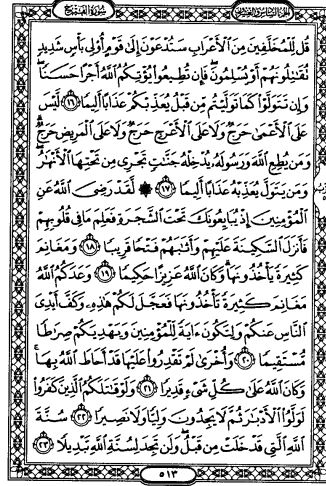 سُورَةُ الفَتْحِ
الجزء السادس والعشرون
قُل لِّلْمُخَلَّفِينَ مِنَ ٱلْأَعْرَابِ سَتُدْعَوْنَ إِلَىٰ قَوْمٍ أُو۟لِى بَأْسٍ شَدِيدٍ
تُقَٰتِلُونَهُمْ أَوْ يُسْلِمُونَ ۖ فَإِن تُطِيعُوا۟ يُؤْتِكُمُ ٱللَّهُ أَجْرًا حَسَنًا ۖ
وَإِن تَتَوَلَّوْا۟ كَمَا تَوَلَّيْتُم مِّن قَبْلُ يُعَذِّبْكُمْ عَذَابًا أَلِيمًا ﴿١٦﴾ لَّيْسَ
عَلَى ٱلْأَعْمَىٰ حَرَجٌ وَلَا عَلَى ٱلْأَعْرَجِ حَرَجٌ وَلَا عَلَى ٱلْمَرِيضِ حَرَجٌ ۗ
وَمَن يُطِعِ ٱللَّهَ وَرَسُولَهُۥ يُدْخِلْهُ جَنَّٰتٍ تَجْرِى مِن تَحْتِهَا ٱلْأَنْهَٰرُ ۖ
وَمَن يَتَوَلَّ يُعَذِّبْهُ عَذَابًا أَلِيمًا ﴿١٧﴾ ۞ لَّقَدْ رَضِىَ ٱللَّهُ عَنِ
ٱلْمُؤْمِنِينَ إِذْ يُبَايِعُونَكَ تَحْتَ ٱلشَّجَرَةِ فَعَلِمَ مَا فِى قُلُوبِهِمْ
فَأَنزَلَ ٱلسَّكِينَةَ عَلَيْهِمْ وَأَثَٰبَهُمْ فَتْحًا قَرِيبًا ﴿١٨﴾ وَمَغَانِمَ
كَثِيرَةً يَأْخُذُونَهَا ۗ وَكَانَ ٱللَّهُ عَزِيزًا حَكِيمًا ﴿١٩﴾ وَعَدَكُمُ ٱللَّهُ
مَغَانِمَ كَثِيرَةً تَأْخُذُونَهَا فَعَجَّلَ لَكُمْ هَٰذِهِۦ وَكَفَّ أَيْدِىَ
ٱلنَّاسِ عَنكُمْ وَلِتَكُونَ ءَايَةً لِّلْمُؤْمِنِينَ وَيَهْدِيَكُمْ صِرَٰطًا
مُّسْتَقِيمًا ﴿٢٠﴾ وَأُخْرَىٰ لَمْ تَقْدِرُوا۟ عَلَيْهَا قَدْ أَحَاطَ ٱللَّهُ بِهَا ۚ
وَكَانَ ٱللَّهُ عَلَىٰ كُلِّ شَىْءٍ قَدِيرًا ﴿٢١﴾ وَلَوْ قَٰتَلَكُمُ ٱلَّذِينَ كَفَرُوا۟
لَوَلَّوُا۟ ٱلْأَدْبَٰرَ ثُمَّ لَا يَجِدُونَ وَلِيًّا وَلَا نَصِيرًا ﴿٢٢﴾ سُنَّةَ
ٱللَّهِ ٱلَّتِى قَدْ خَلَتْ مِن قَبْلُ ۖ وَلَن تَجِدَ لِسُنَّةِ ٱللَّهِ تَبْدِيلًا ﴿٢٣﴾
٥١٣